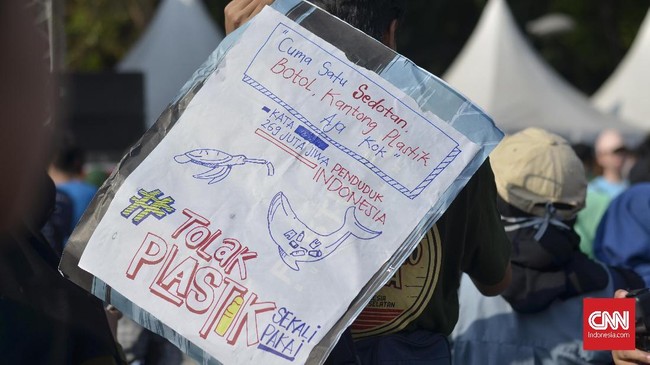 "Cuma Satu Sedotan,
Botol, Kantong Plastik
Aja Kok"
-KATA
269 JUTA JIWA PENDUDUK
INDONESIA
#TOLAK
PLASTIK
SEKALI
PAKAI
CNN
Indonesia.com